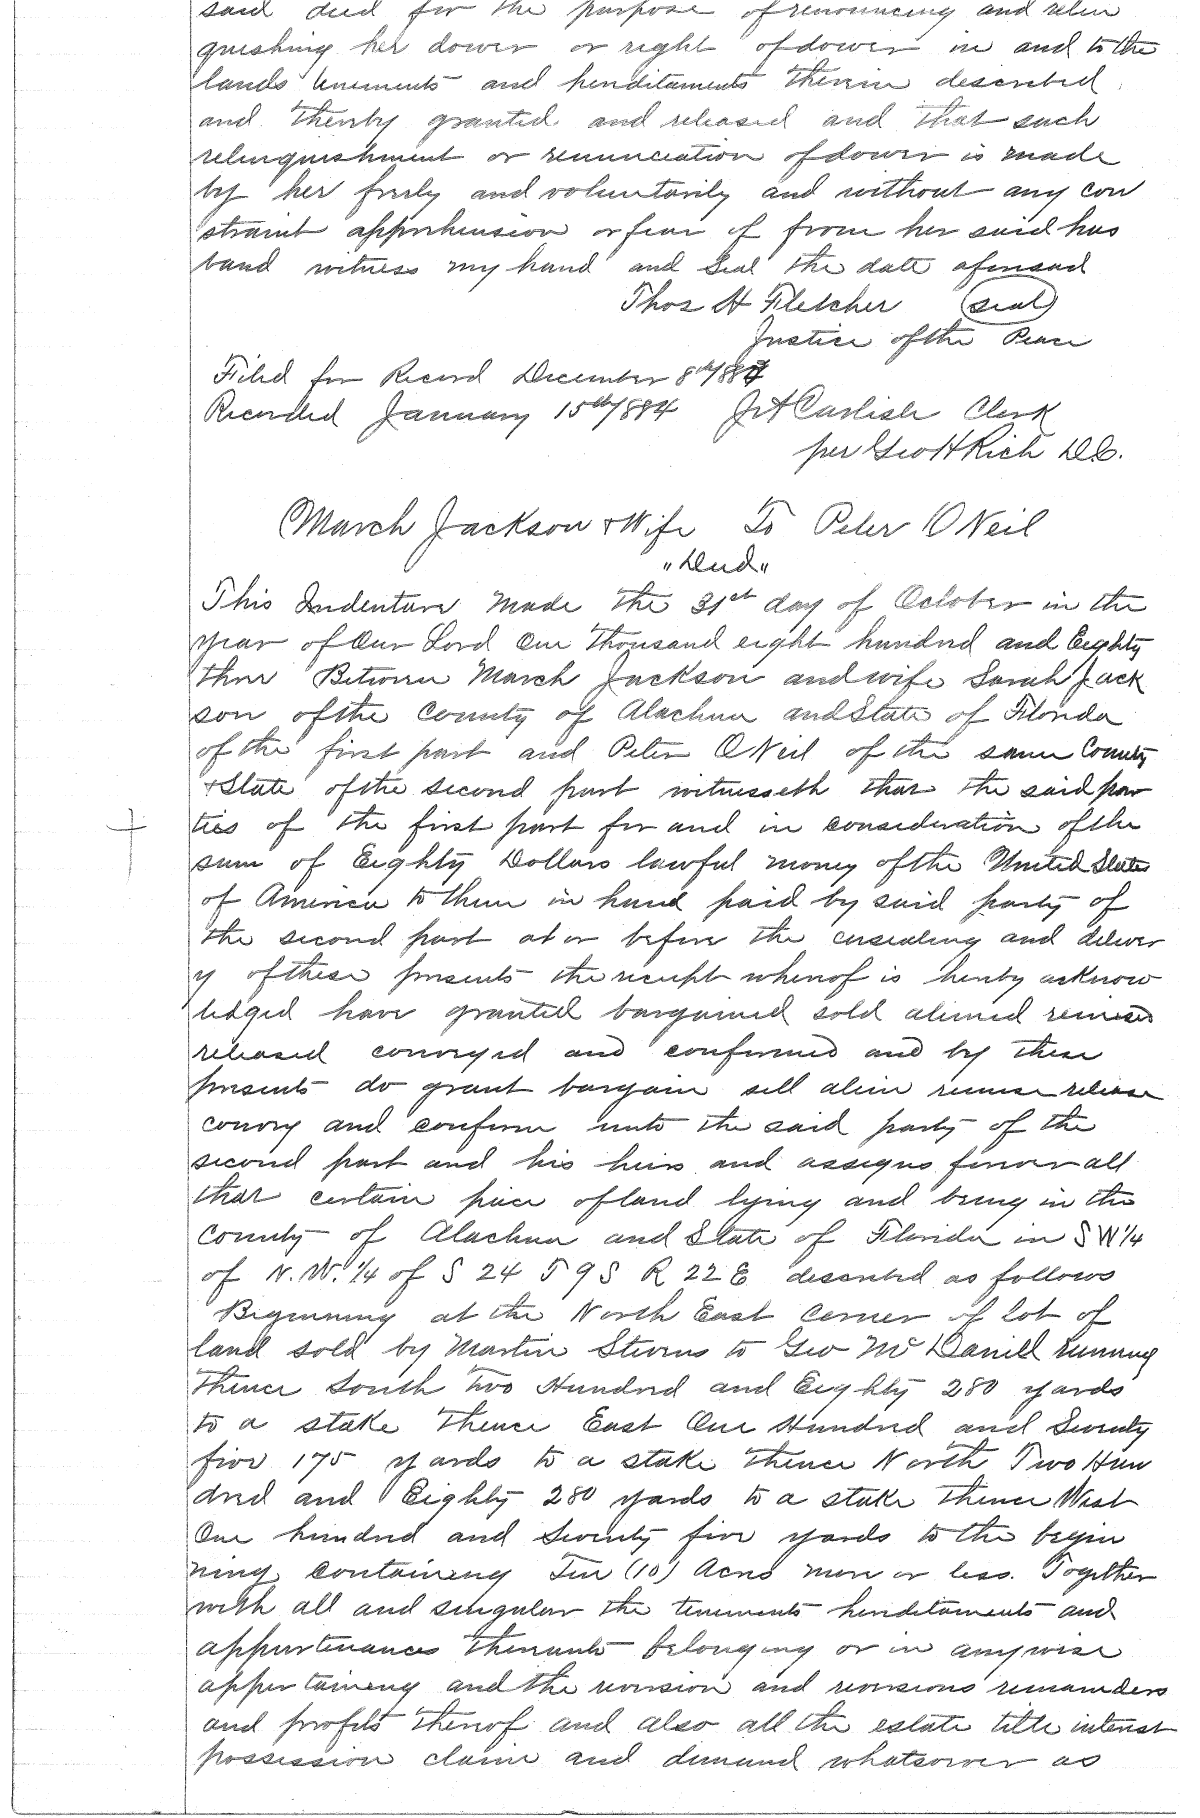 said deed for the purpose of renouncing and relin
quishing her dower or right of dower in and to the
lands tenements and hereditaments therein described
and thereby granted and released and that such
relinquishment or renunciation of dower is made
by her freely and voluntarily and without any con
straint apprehension or fear of from her said hus
band witness my hand and Seal the date aforesaid
Thos H Fletcher (seal)
Justice of the Peace
Filed for Record December 8th/883
Recorded January 15th/884 J A Carlisle Clerk
per Geo H Rich D.C.
March Jackson & Wife To Peter O Neil
"Deed"
This Indenture Made the 31st day of October in the
year of Our Lord One Thousand eight hundred and Eighty
three Between March Jackson and wife Sarah Jack
son of the County of Alachua and State of Florida
of the first part and Peter O Neil of the same County
& State of the second part witnesseth that the said par
ties of the first part for and in consideration of the
sum of Eighty Dollars lawful money of the United States
of America to them in hand paid by said party of
the second part at or before the ensealing and deliver
y of these presents the receipt whereof is hereby acknow
ledged have granted bargained sold aliened remised
released conveyed and confirmed and by these
presents do grant bargain sell alien remise release
convey and confirm unto the said party of the
second part and his heirs and assigns forever all
that certain piece of land lying and being in the
County of Alachua and State of Florida in S W 1/4
of N. W. 1/4 of S 24 T 9 S R 22 E described as follows
Beginning at the North East Corner of lot of
land sold by Martin Stevens to Geo Mc Daniel running
Thence South Two Hundred and Eighty 280 yards
to a stake Thence East One Hundred and Seventy
five 175 yards to a stake thence North Two Hun
dred and Eighty 280 yards to a stake Thence West
One hundred and Seventy five yards to the begin
ning containing Ten (10) Acres more or less. Together
with all and singular the tenements hereditaments and
appurtenances thereunto belonging or in anywise
appertaining and the reversion and reversions remainders
and profits thereof and also all the estate title interest
possession claim and demand whatsoever as